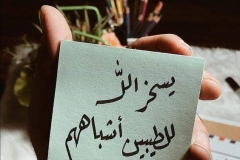 يسخر اللّٰه
للطيبين أشباههم